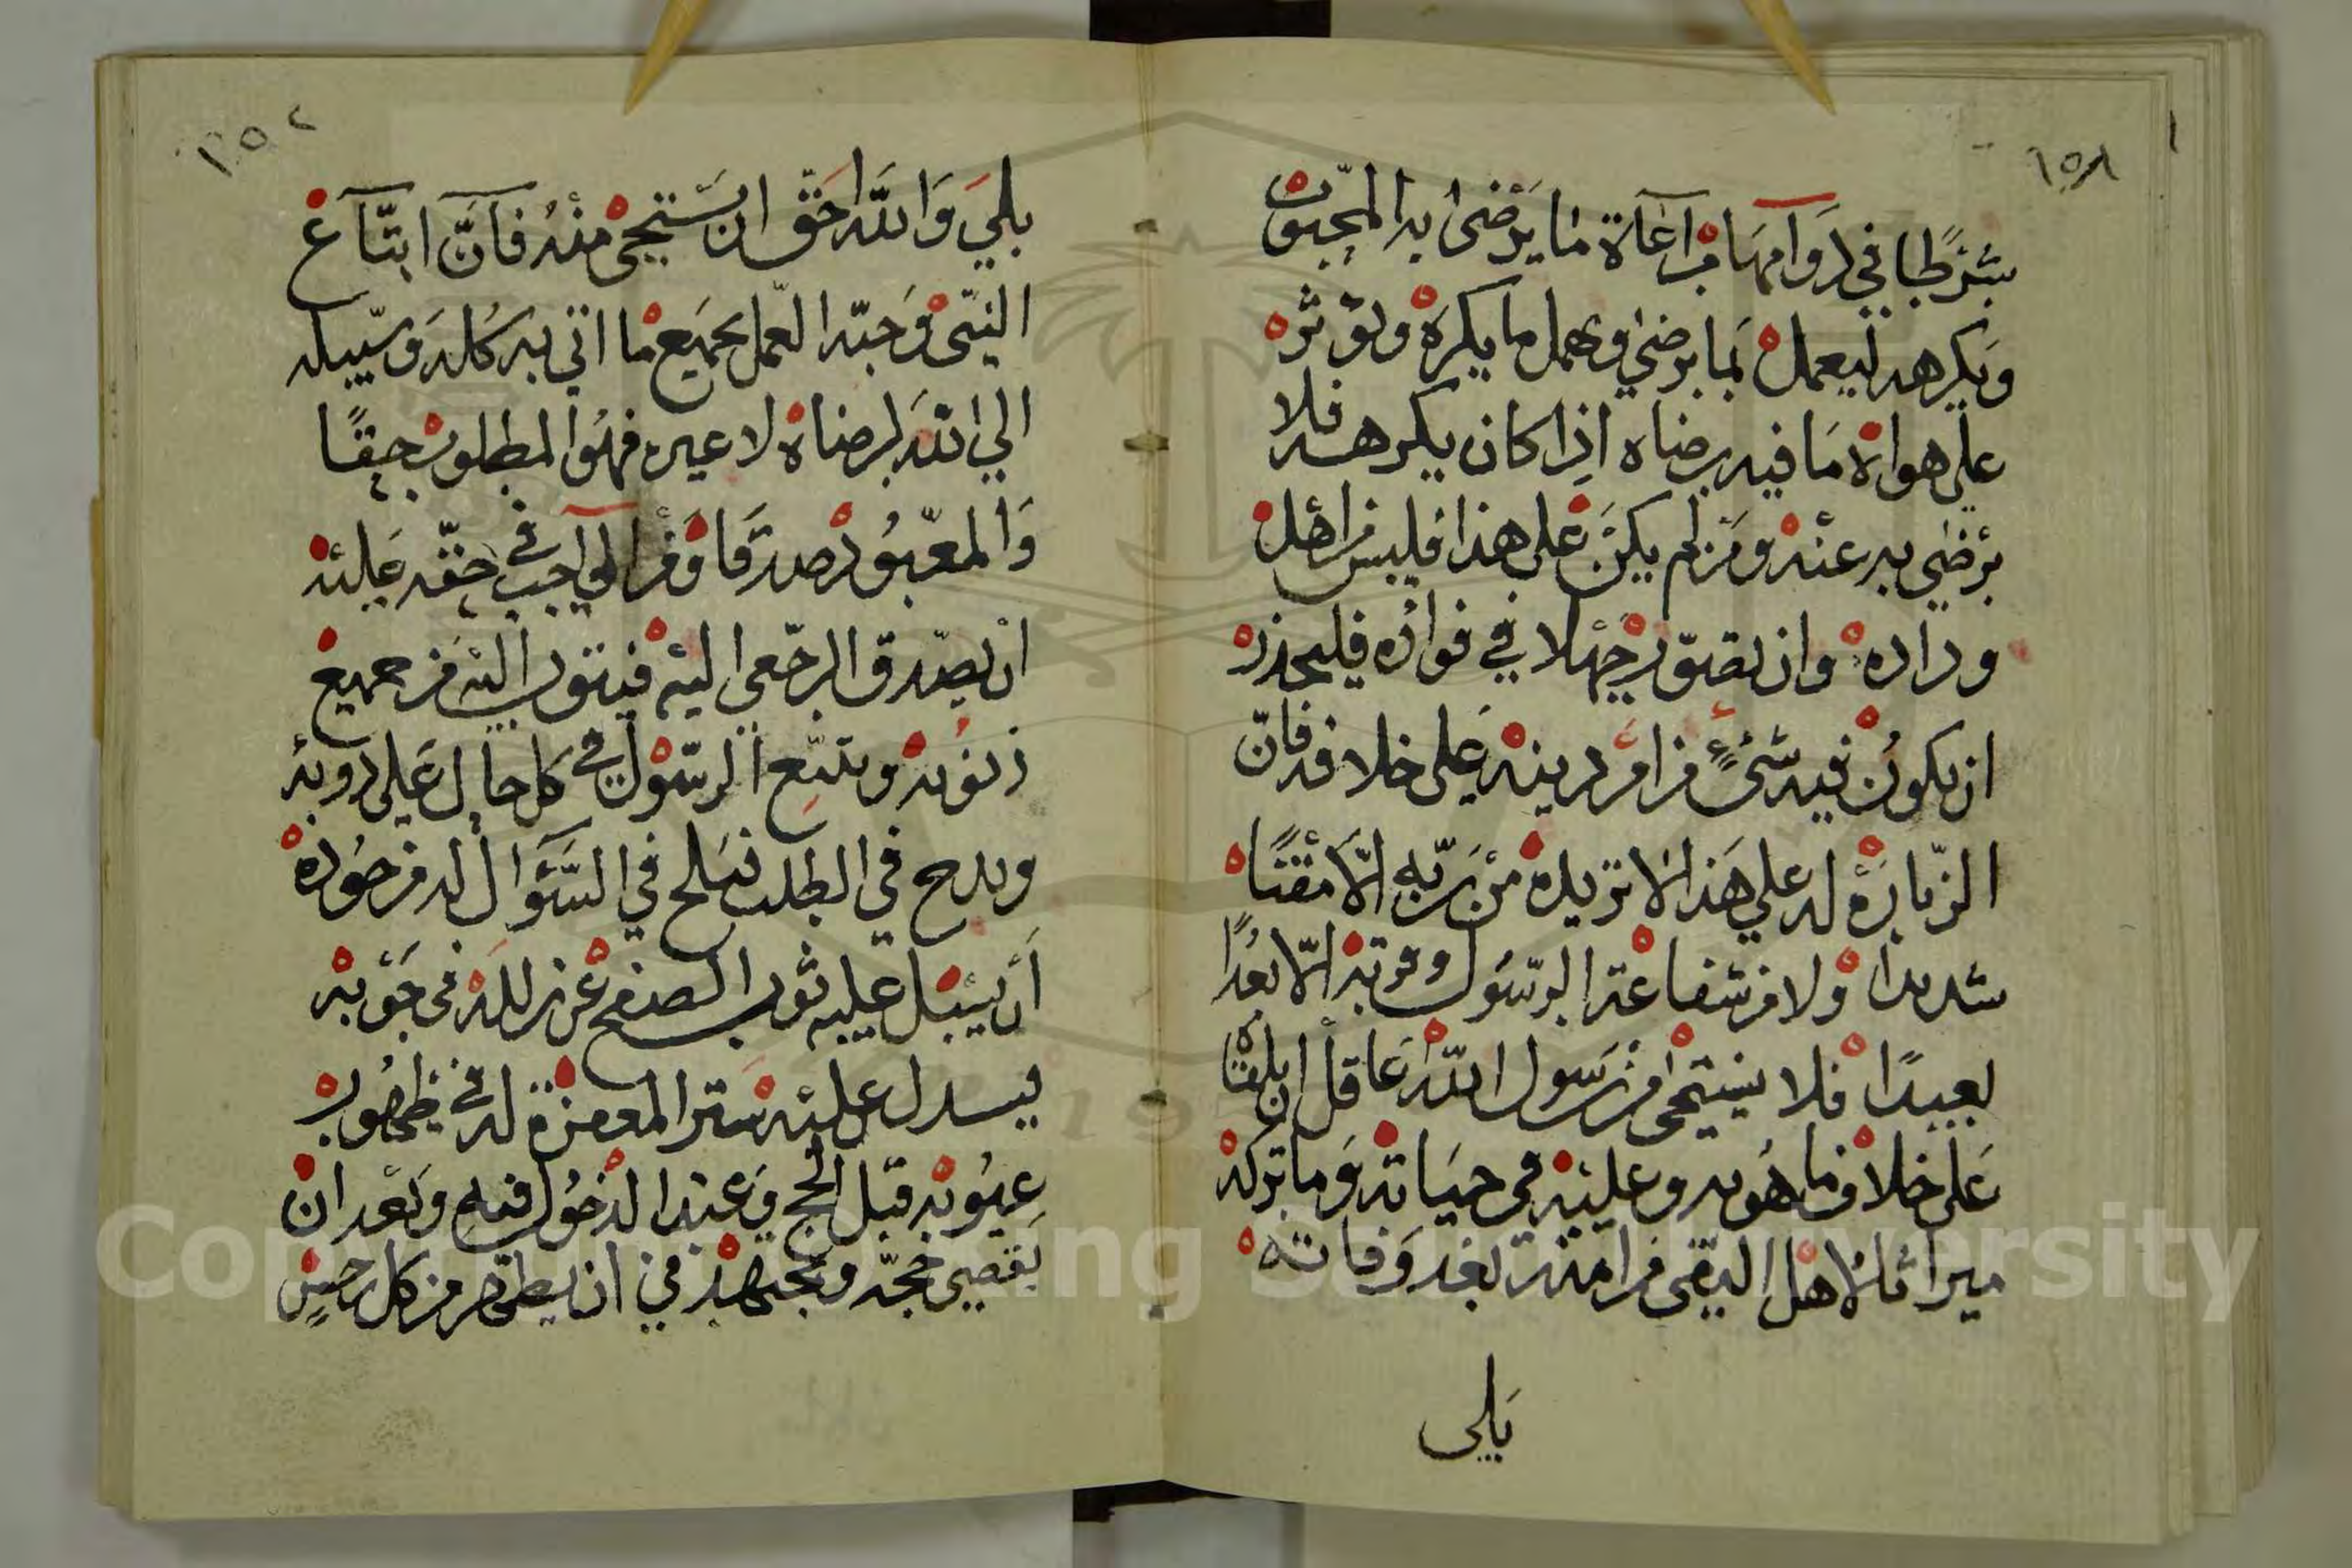 ١٥٨
شرطا في دوامها مراعاة ما يرضى به المحبوب
ويكرهه ليعمل بما يرضى ويهمل ما يكره ويؤثره
على هواه ما فيه رضاه اذا كان يكرهه فلا
يرضى به عنه ومن لم يكن على هذا فليس من اهل
وداده وان تصور جهلا في فواده فليحذر
ان يكون فيه شئ من امر دينه على خلافه فان
الزيارة له على هذا لا تزيده من ربه الا مقتا
شديدا ولا من شفاعة الرسول وقربه الا بعدا
بعيدا فلا يستحي من رسول الله عاقل ان يلقاه
على خلاف ما هو به وعليه في حياته وما تركه
ميراثا لاهل التقى من امته بعد وفاته
بلى
بلى والله احق ان يستحيى منه فان اتباع
النبي وحبه العمل بجميع ما اتى به كله وسيله
الى الله لرضاه لا غيره فهو المطلوب حقا
والمعبود صدقا ومن الواجب في حقه عليه
ان يصدق الرجعى اليه فيتوب اليه من جميع
ذنوبه ويتبع الرسول في كل حال على دوبه
ويدح في الطلب فيلح في السؤال له من جوده
أن يسبل عليه ثوب الصفح عن زلله في حوبه
يسدل عليه ستر المغفرة له في ظهور
عيوبه قبل الحج وعند الدخول فيه وبعد ان
يقضي حجه ويجتهد في ان يطهر من كل رجس
Copyright King Saud University